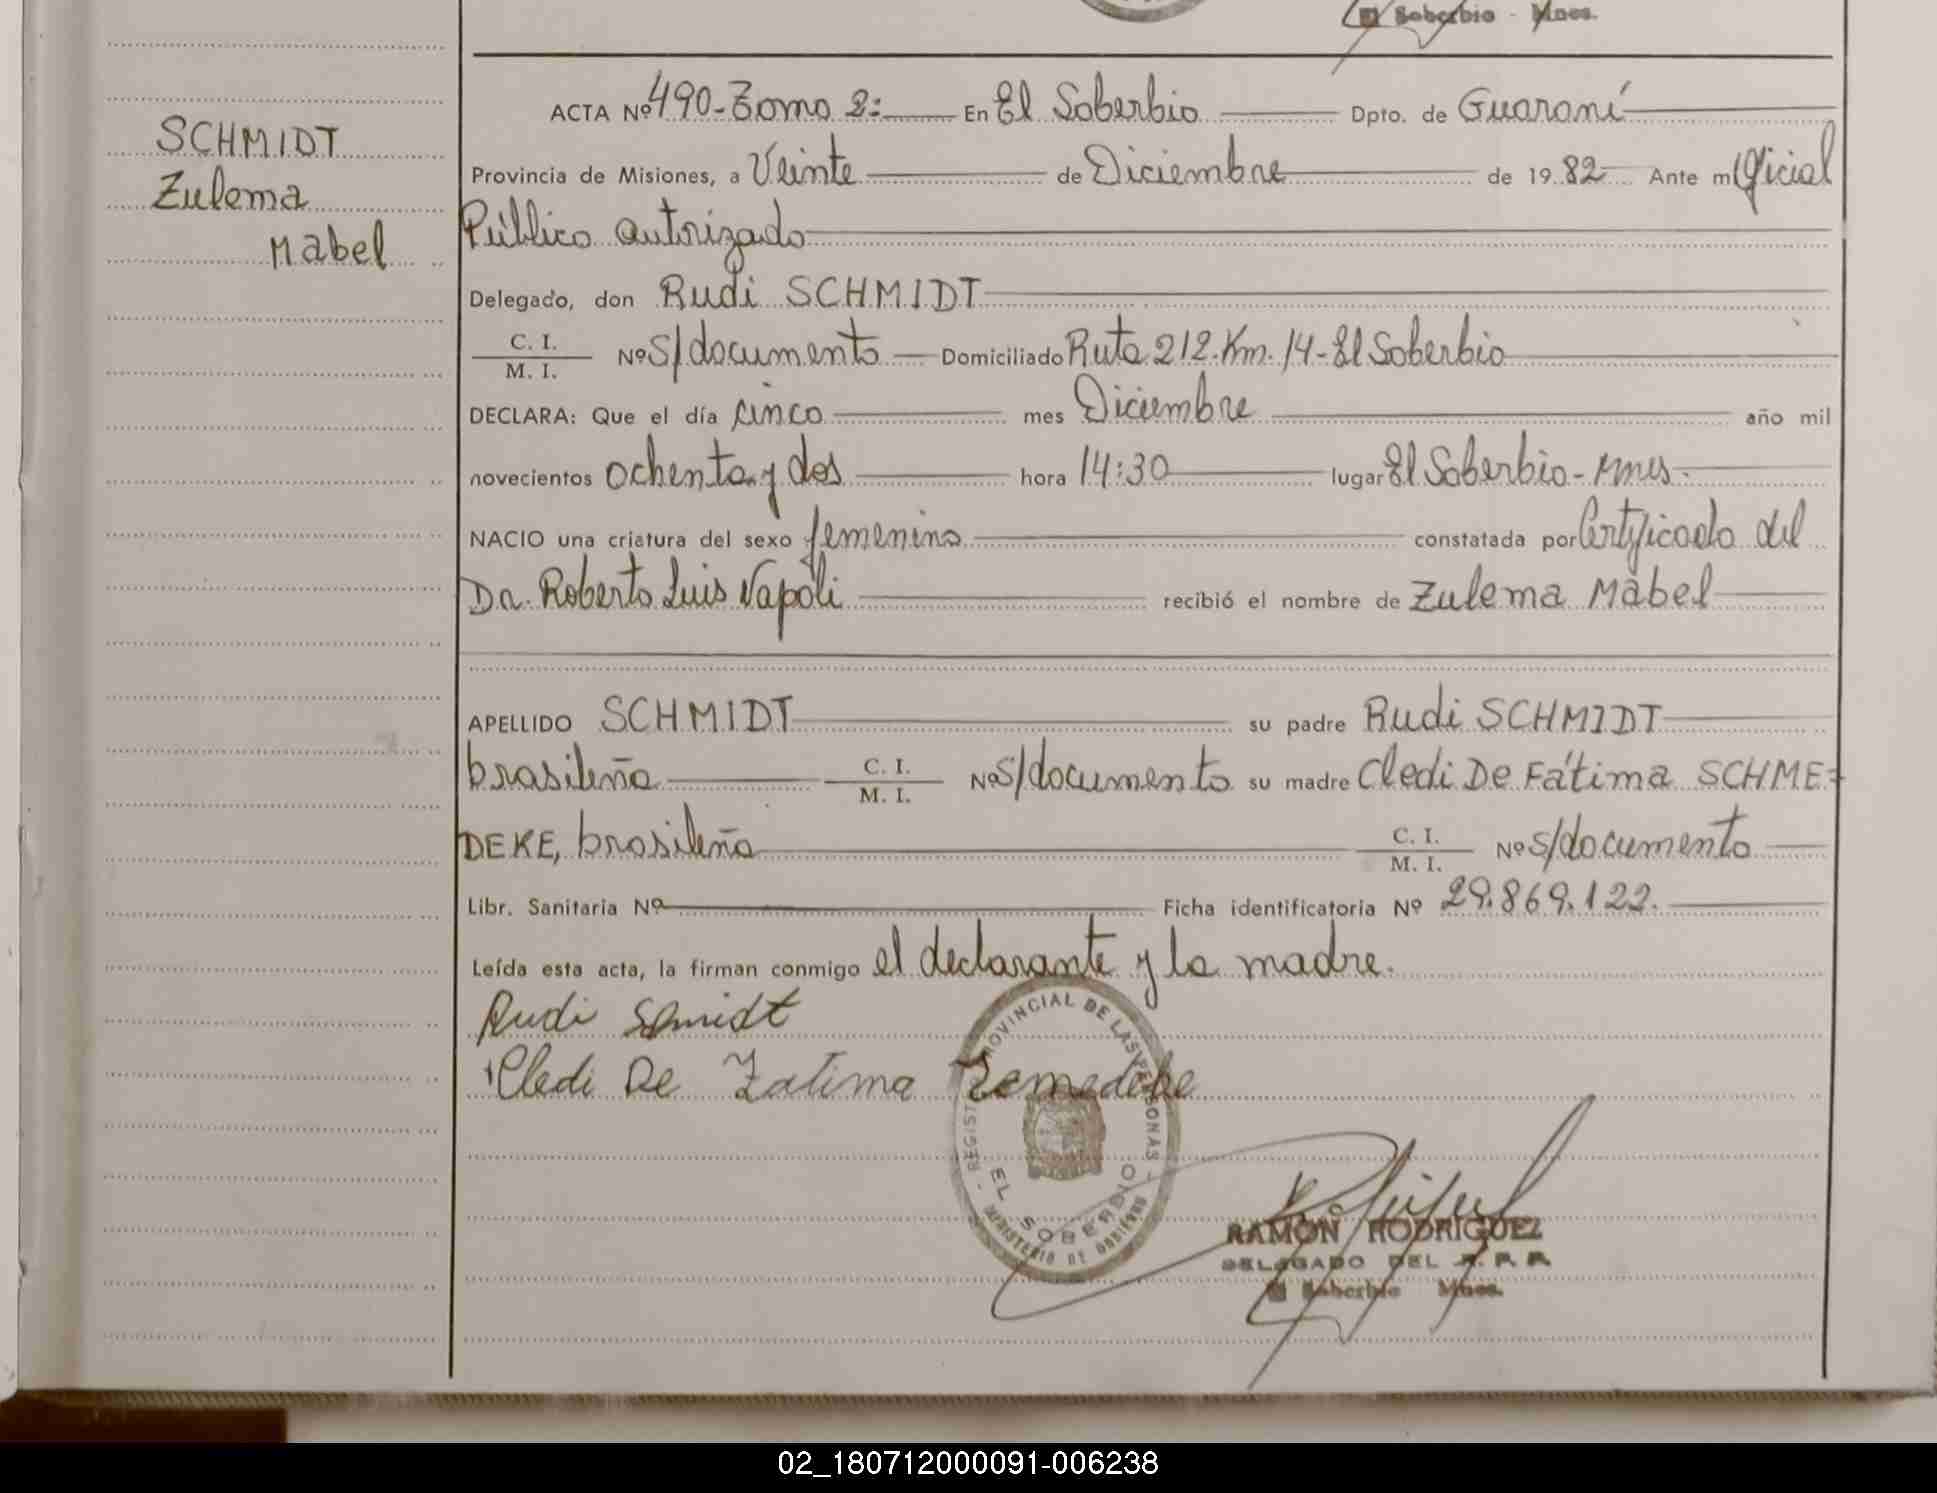 El Soberbio - Mnes.
SCHMIDT
Zulema
Mabel
ACTA Nº 490-Tomo 2: En El Soberbio Dpto. de Guaraní
Provincia de Misiones, a Veinte de Diciembre de 1982 Ante mi Oficial
Público autorizado
Delegado, don Rudi SCHMIDT
C. I.
M. I.
Nº S/documento Domiciliado Ruta 212. Km. 14-El Soberbio
DECLARA: Que el día cinco mes Diciembre año mil
novecientos ochenta y dos hora 14:30 lugar El Soberbio-Mnes.
NACIO una criatura del sexo femenino constatada por Certificado del
Dr. Roberto Luis Napoli recibió el nombre de Zulema Mabel
APELLIDO SCHMIDT su padre Rudi SCHMIDT
brasileña C. I. M. I. Nº S/documento su madre Cledi De Fátima SCHME=
DEKE, brasileña C. I. M. I. Nº S/documento
Libr. Sanitaria Nº Ficha identificatoria Nº 29.869.122.
Leída esta acta, la firman conmigo el declarante y la madre.
Rudi Schmidt
Cledi De Fatima
REGIST PROVINCIAL DE LAS PERSONAS
EL SOBERBIO
MINISTERIO DE GOBIERNO
RAMON RODRIGUEZ
DELEGADO DEL R. P. P.
El Soberbio Mnes.
02_180712000091-006238